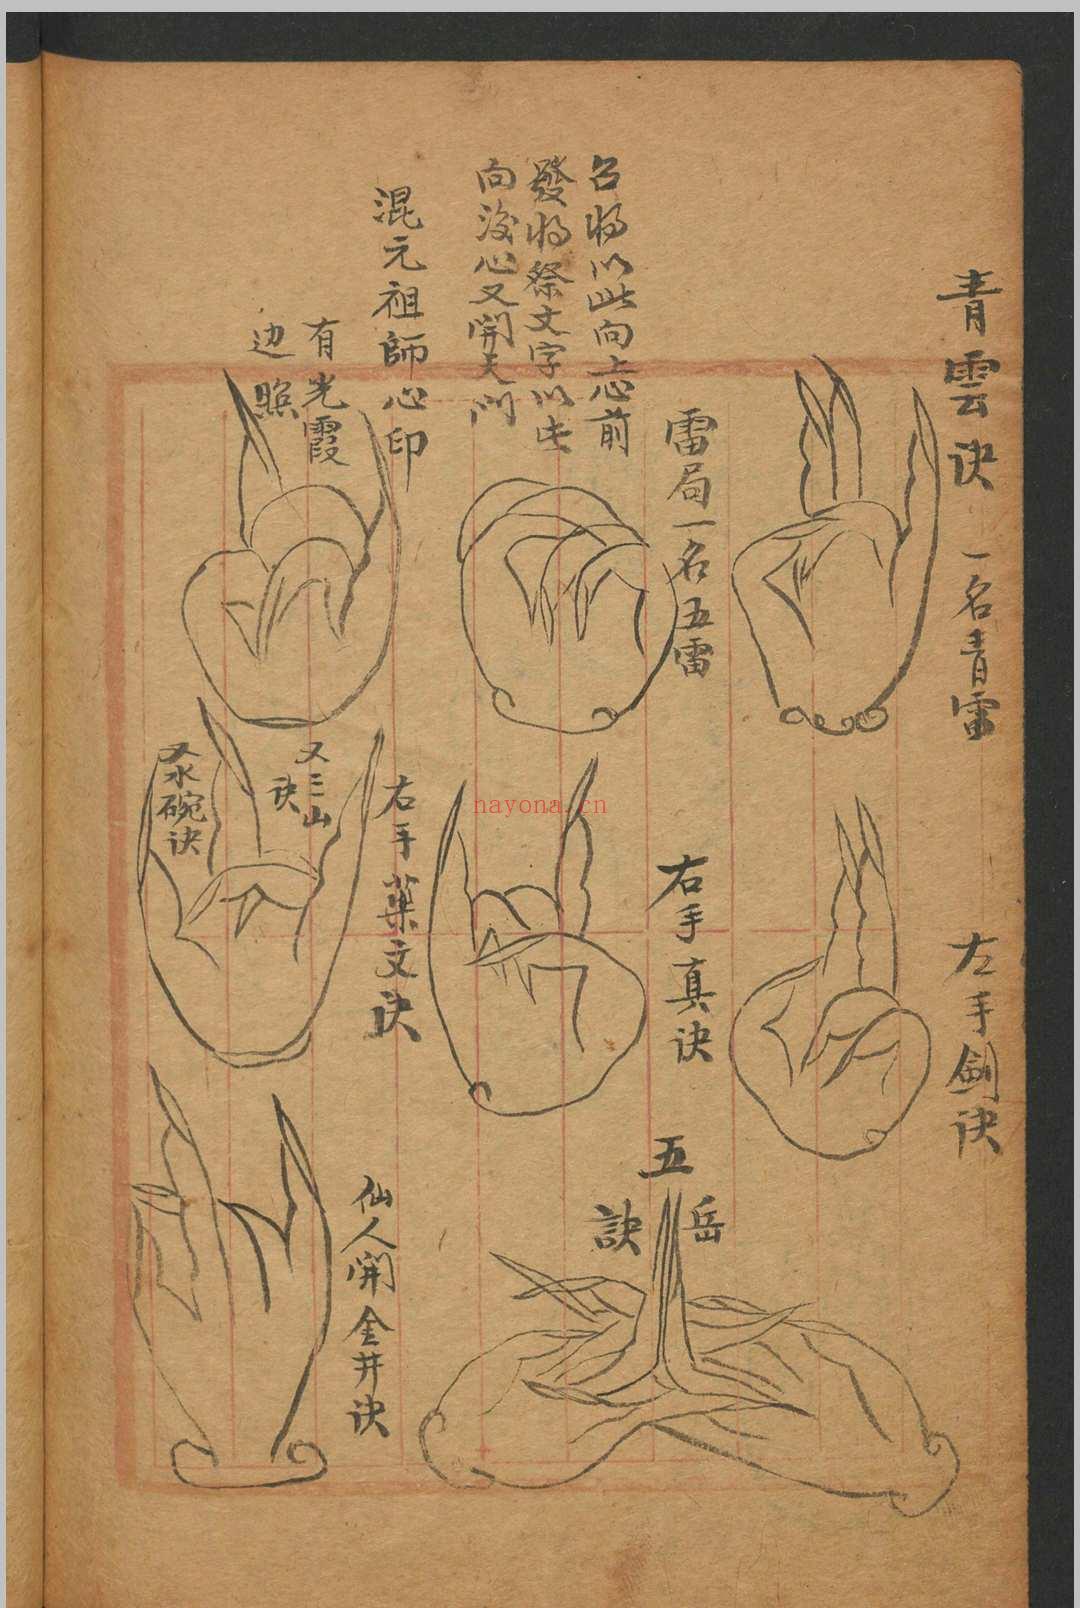 青雲诀 一名青雷
左手劍诀
雷局一名五雷
召将以此向志前
發将祭文字以此
向後心又開天门
右手真诀
五岳訣
混元祖師心印
有光霞
边照
右手薬文诀
又三山
诀
又水碗诀
仙人開金井诀
nayona.cn